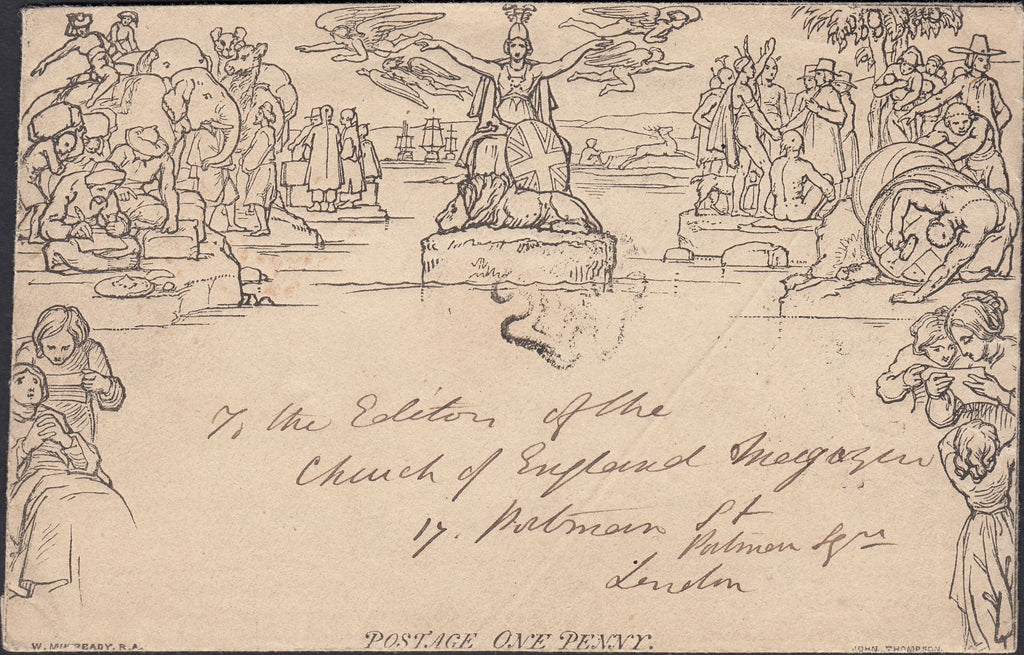 To the Editor of the
Church of England Magazen
17. Portman St
Portman Sqre
London
POSTAGE ONE PENNY.
W. MULREADY, R.A.
JOHN THOMPSON.